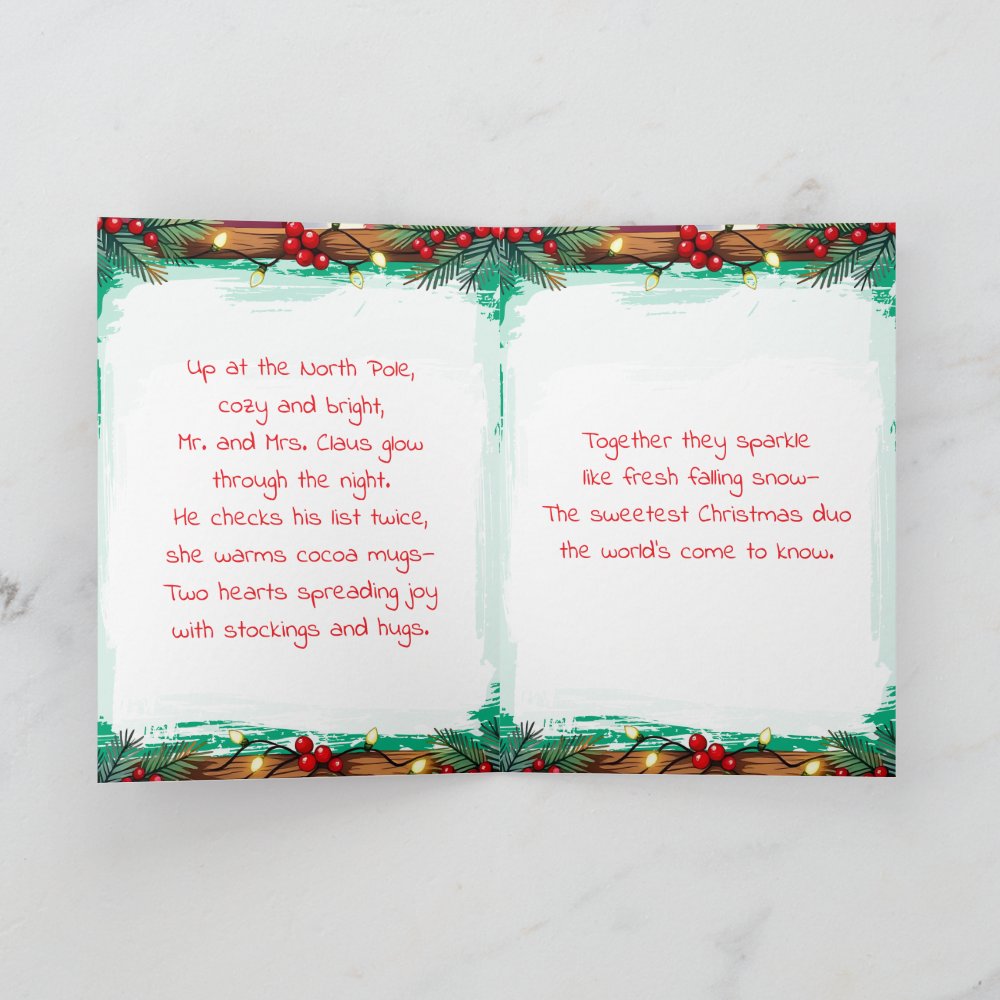 Up at the North Pole,
cozy and bright,
Mr. and Mrs. Claus glow
through the night.
He checks his list twice,
she warms cocoa mugs–
Two hearts spreading joy
with stockings and hugs.
Together they sparkle
like fresh falling snow–
The sweetest Christmas duo
the world's come to know.